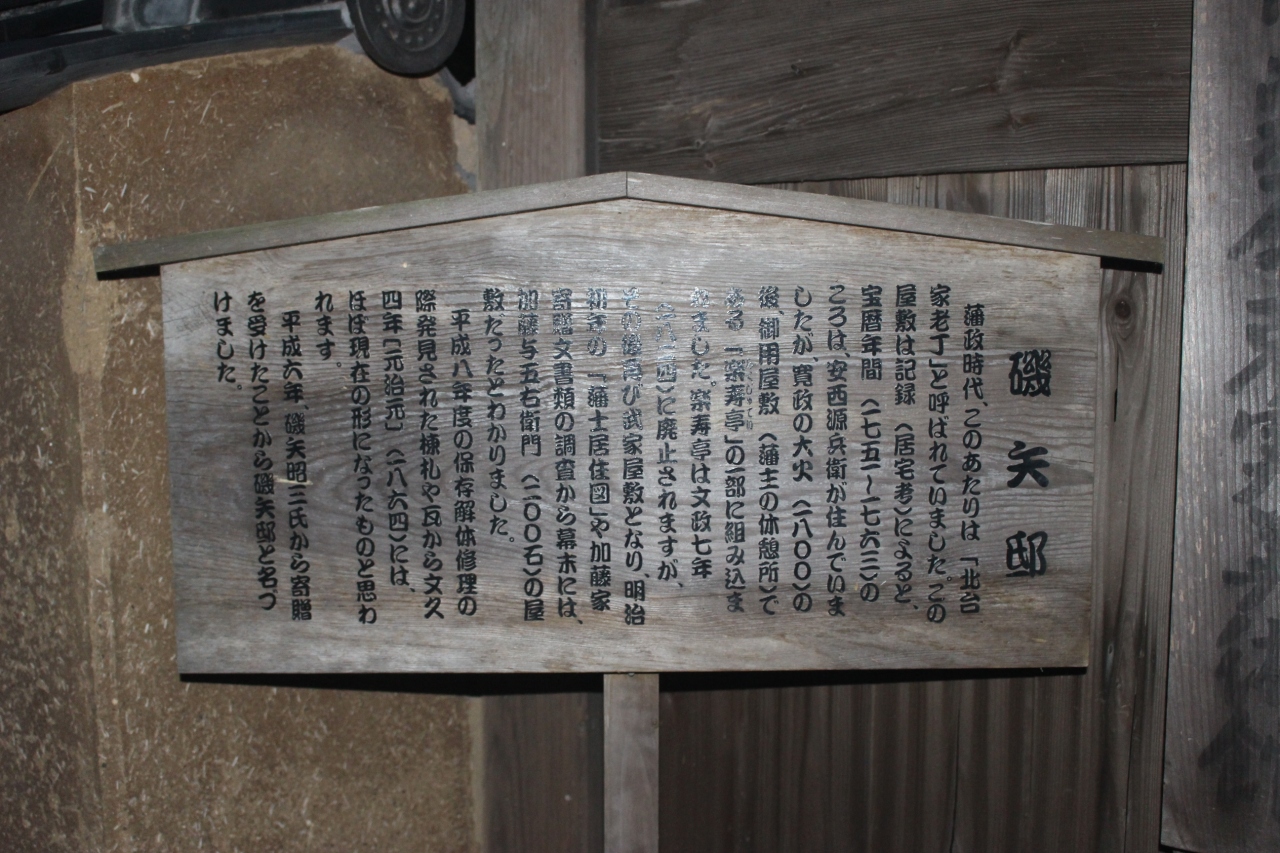 磯矢邸
藩政時代、このあたりは「北台
家老丁」と呼ばれていました。この
屋敷は記録（居宅考）によると、
宝暦年間（一七五一～一七六三）の
ころは、安西源兵衛が住んでいま
したが、寛政の大火（一八〇〇）の
後、御用屋敷（藩主の休憩所）で
ある「楽寿亭」の一部に組み込ま
れました。楽寿亭は文政七年
に廃止されますが、
その後再び武家屋敷となり、明治
初年の「藩士居住図」や加藤家
寄贈文書類の調査から幕末には、
加藤与五右衛門（二〇〇石）の屋
敷だったとわかりました。
平成八年度の保存解体修理の
際発見された棟札や瓦から文久
四年［元治元］（一八六四）には、
ほぼ現在の形になったものと思わ
れます。
平成六年、磯矢昭三氏から寄贈
を受けたことから磯矢邸と名づ
けました。